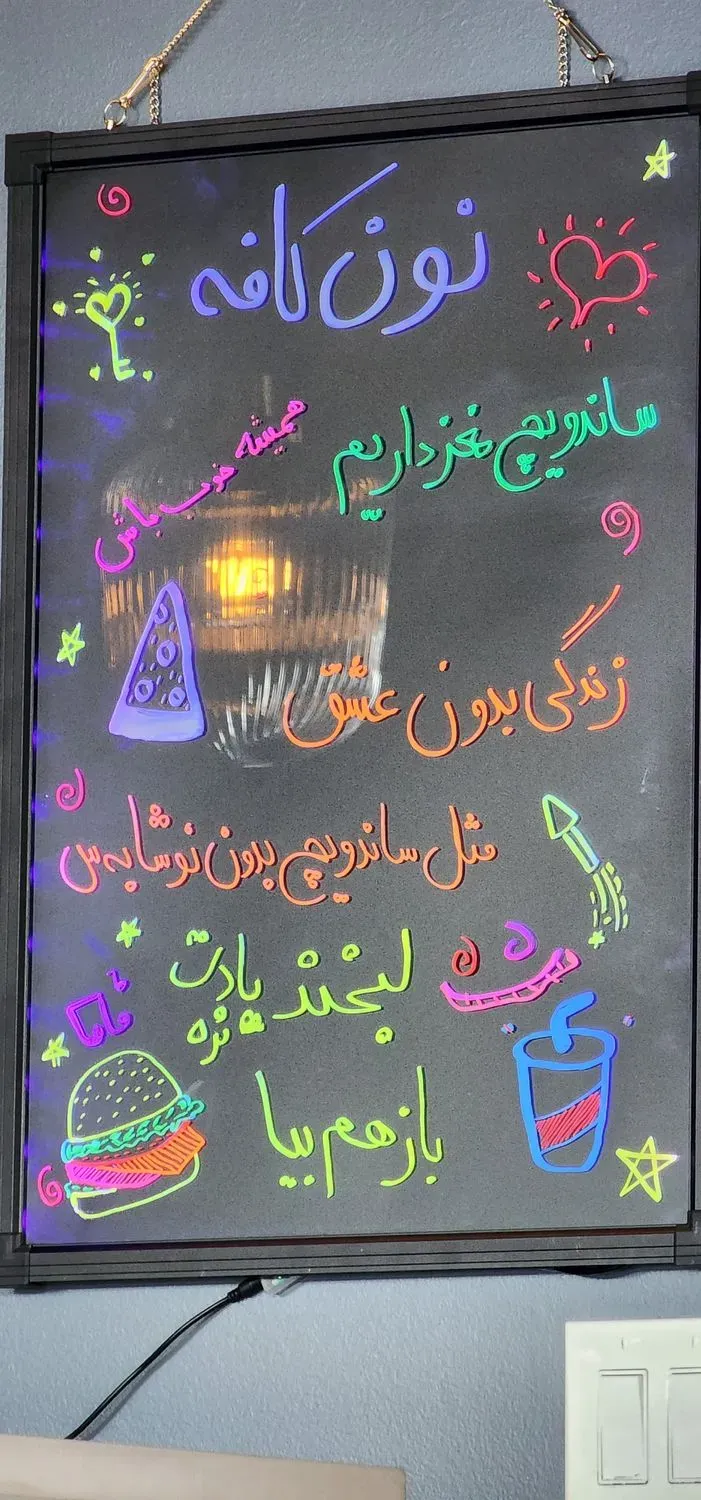 نون کافه
ساندویچ نغز داریم
همیشه خوب باش
زندگی بدون عشق
مثل ساندویچ بدون نوشابه س
لبخند یادت
نره
بازهم بیا